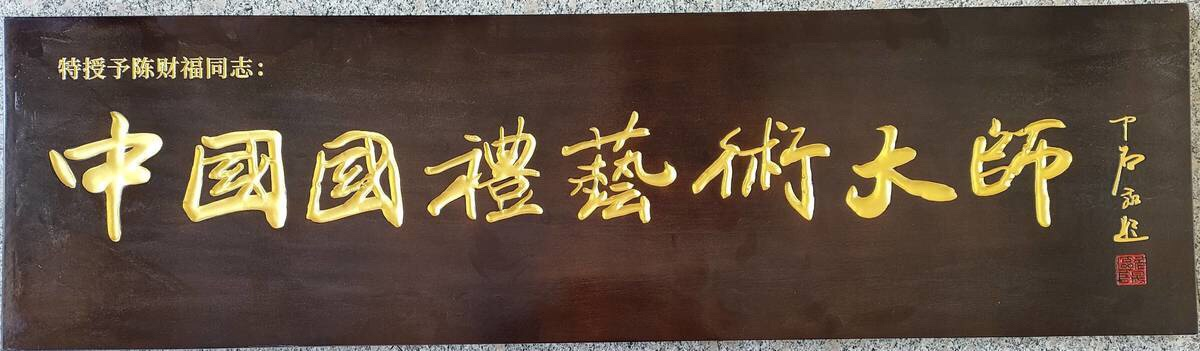 特授予陈财福同志：
中國國禮藝術大師